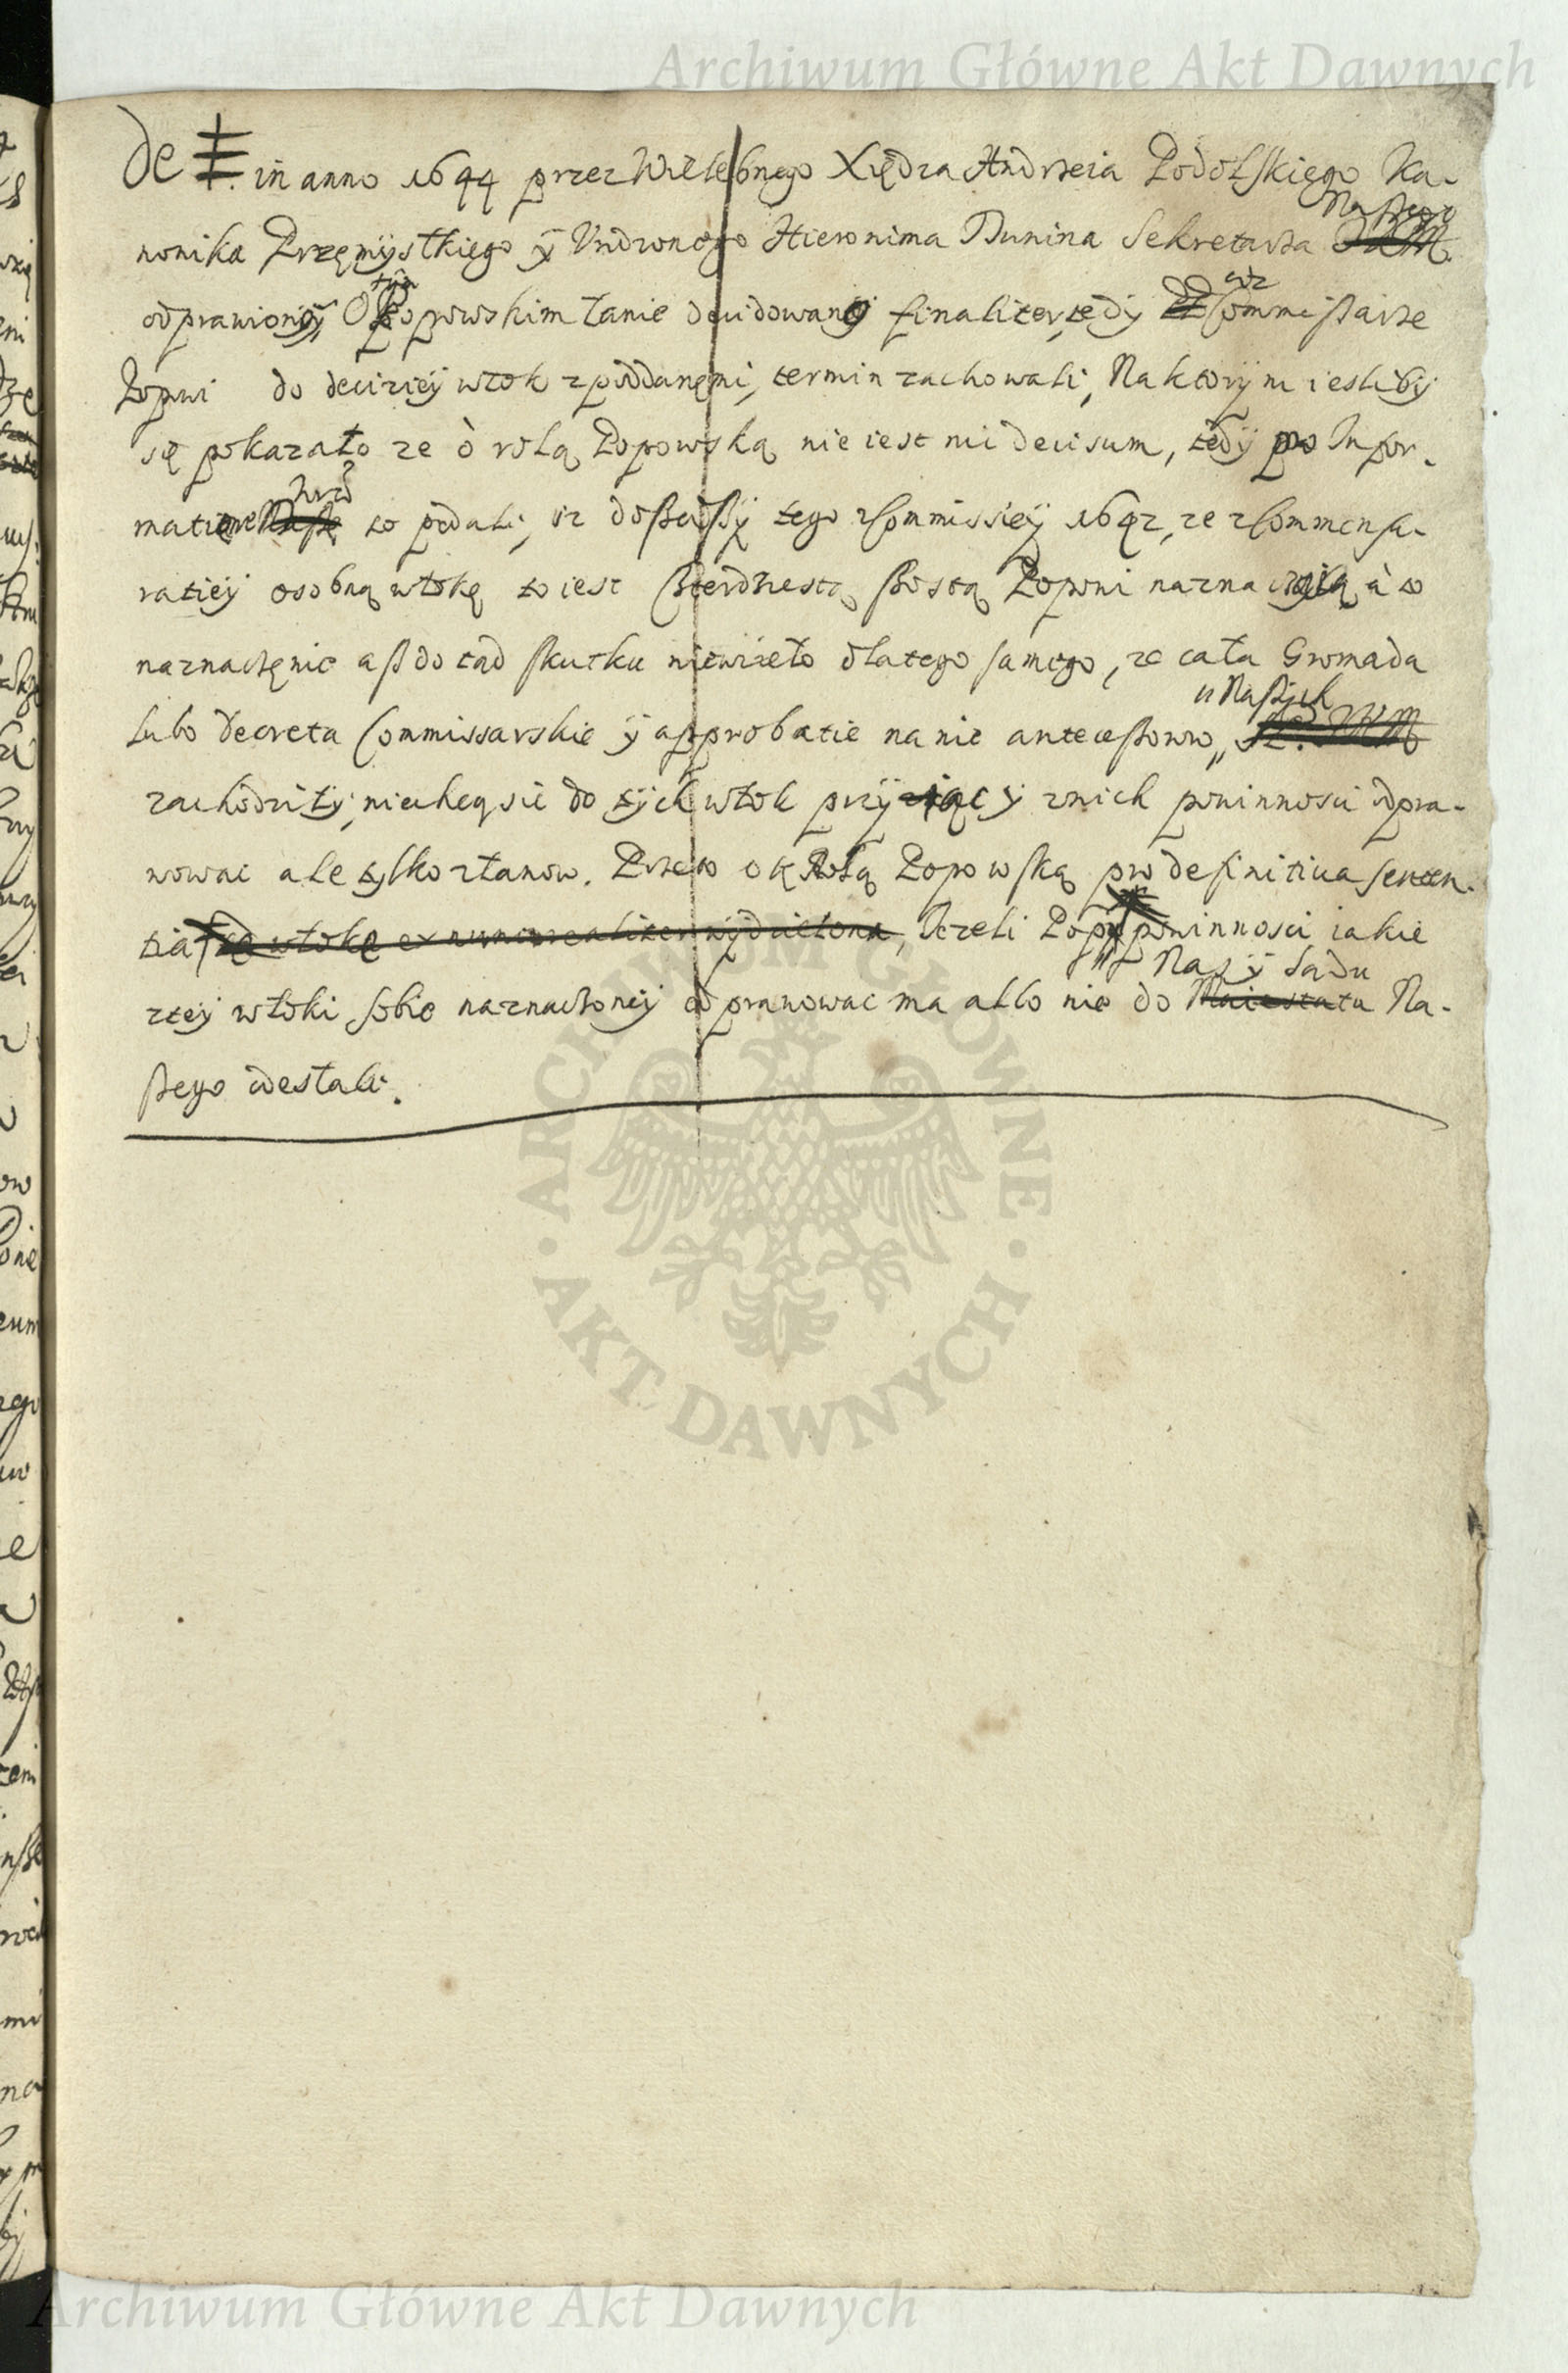 Archiwum Główne Akt Dawnych
de in anno 1644 przez Wielebnego Xiędza Andrzeia Podolskiego Ka-
nonika Przęmyskiego ÿ Vrodzonego Hieronima Dunina Sekretarza Naszego
odprawionÿ O tÿm Popowskim łanie decidowano finaliter, tedÿ ciz Commissarze
Popowi do deciziey włok z poddanęmi, termin zachowali, Na ktorym iesliby
się pokazało ze ò rolą Popowską nie iest nic decisum, tedÿ pro Infor-
matione to podali, iz doszedszy tego z Commissiey 1642, ze z Commensu-
ratiey osobną włokę to iest szterdziestą szostą Popowi naznaczyłą, à to
naznaczęnie asz do tąd skutku niewzieło dlatego samego, ze cała Gromada
lubo decreta Commissarskie ÿ approbatie na nie antecessorow Naszych
zachodziłÿ, niechcą sie do tych włok przyiąc y z nich powinnosci odpra-
wowac ale tylko z łanow. Przeto o tę Rolą Popowską pro definitiua senten-
tia Iezeli Pop powinnosci iakie
z tey włoki sobie naznaczoney odprawowac ma albo nie do Nas ÿ Sądu Na-
szego odesłali.
ARCHIWUM GŁÓWNE · AKT DAWNYCH ·
Archiwum Główne Akt Dawnych